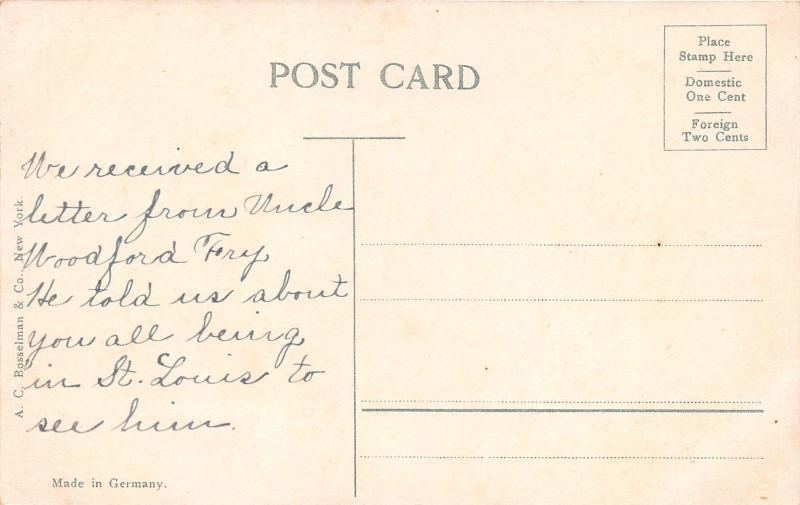 POST CARD
Place
Stamp Here
Domestic
One Cent
Foreign
Two Cents
We received a
letter from Uncle
Woodford Fry
He told us about
you all being
in St. Louis to
see him.
A. C. Bosselman & Co., New York.
Made in Germany.